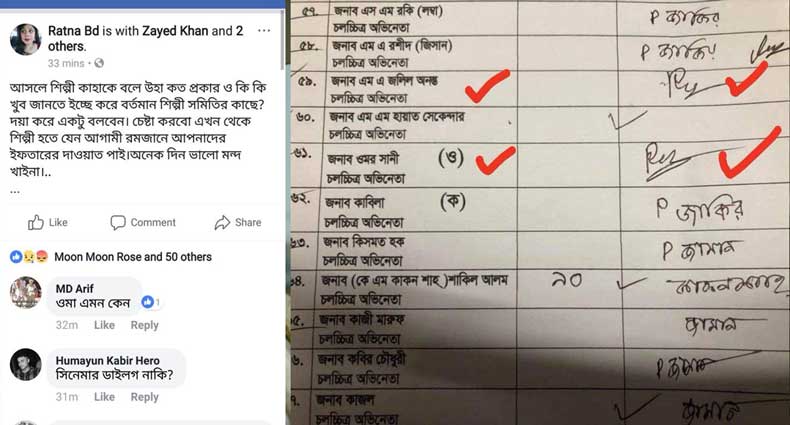 Ratna Bd is with Zayed Khan and 2
others.
33 mins
আসলে শিল্পী কাহাকে বলে উহা কত প্রকার ও কি কি
খুব জানতে ইচ্ছে করে বর্তমান শিল্পী সমিতির কাছে?
দয়া করে একটু বলবেন। চেষ্টা করবো এখন থেকে
শিল্পী হতে যেন আগামী রমজানে আপনাদের
ইফতারের দাওয়াত পাই।অনেক দিন ভালো মন্দ
খাইনা।..
...
Like Comment Share
Moon Moon Rose and 50 others
MD Arif
ওমা এমন কেন
1
32m Like Reply
Humayun Kabir Hero
সিনেমার ডাইলগ নাকি?
31m Like Reply
৫৭. জনাব এস এম রকি (লম্বা)
চলচ্চিত্র অভিনেতা
P জাকির
৫৮. জনাব এম এ রশীদ (জিসান)
চলচ্চিত্র অভিনেতা
P জাকির
৫৯. জনাব এম এ জলিল অনন্ত
চলচ্চিত্র অভিনেতা
৬০. জনাব এম এম হায়াত সেকেন্দার
চলচ্চিত্র অভিনেতা
৬১. জনাব ওমর সানী (ও)
চলচ্চিত্র অভিনেতা
৬২. জনাব কাবিলা (ক)
চলচ্চিত্র অভিনেতা
P জাকির
৬৩. জনাব কিসমত হক
চলচ্চিত্র অভিনেতা
P জামান
৪. জনাব (কে এম কাকন শাহ)শাকিল আলম ২০
চলচ্চিত্র অভিনেতা
৫. জনাব কাজী মারুফ
চলচ্চিত্র অভিনেতা
জামান
৬. জনাব কবির চৌধুরী
চলচ্চিত্র অভিনেতা
P জামান
৭. জনাব কাজল
চলচ্চিত্র অভিনেতা
জামান